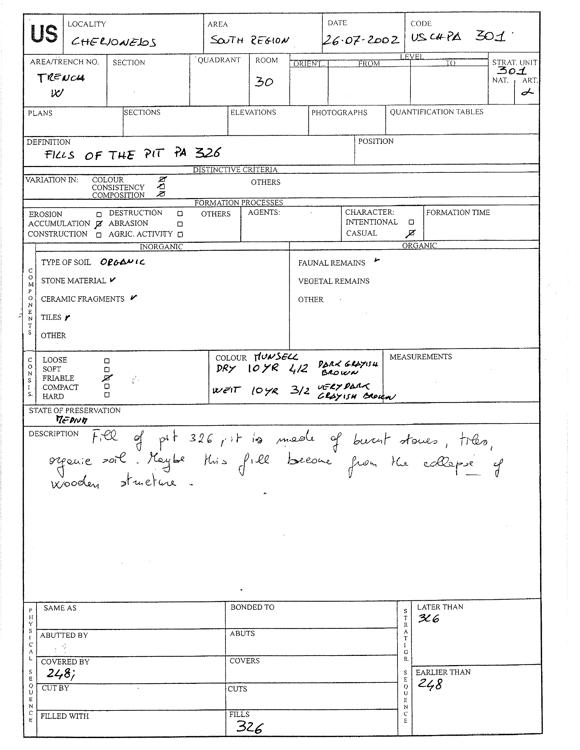 US
LOCALITY
CHERSONESOS
AREA
SOUTH REGION
DATE
26-07-2002
CODE
US CH-PA 301
AREA/TRENCH NO.
TRENCH
W
SECTION
QUADRANT
ROOM
30
LEVEL
ORIENT. FROM TO
STRAT. UNIT
301
NAT. ART.
PLANS
SECTIONS
ELEVATIONS
PHOTOGRAPHS
QUANTIFICATION TABLES
DEFINITION
FILLS OF THE PIT PA 326
POSITION
DISTINCTIVE CRITERIA
VARIATION IN: COLOUR
CONSISTENCY
COMPOSITION
OTHERS
FORMATION PROCESSES
EROSION DESTRUCTION OTHERS
ACCUMULATION ABRASION
CONSTRUCTION AGRIC. ACTIVITY
AGENTS:
CHARACTER:
INTENTIONAL
CASUAL
FORMATION TIME
COMPONENTS
INORGANIC
TYPE OF SOIL ORGANIC
STONE MATERIAL ✓
CERAMIC FRAGMENTS ✓
TILES ✓
OTHER
ORGANIC
FAUNAL REMAINS ✓
VEGETAL REMAINS
OTHER
CONSIS.
LOOSE
SOFT
FRIABLE
COMPACT
HARD
COLOUR MUNSELL
DRY 10YR 4/2 DARK GRAYISH
BROWN
WEIT 10YR 3/2 VERY DARK
GRAYISH BROWN
MEASUREMENTS
STATE OF PRESERVATION
MEDIUM
DESCRIPTION Fill of pit 326, it is made of burnt stones, tiles,
organic soil. Maybe this fill become from the collapse of
wooden structure.
PHYSICAL SEQUENCE
SAME AS
BONDED TO
ABUTTED BY
ABUTS
COVERED BY
248;
COVERS
CUT BY
CUTS
FILLED WITH
FILLS
326
STRATIGR. SEQUENCE
LATER THAN
326
EARLIER THAN
248